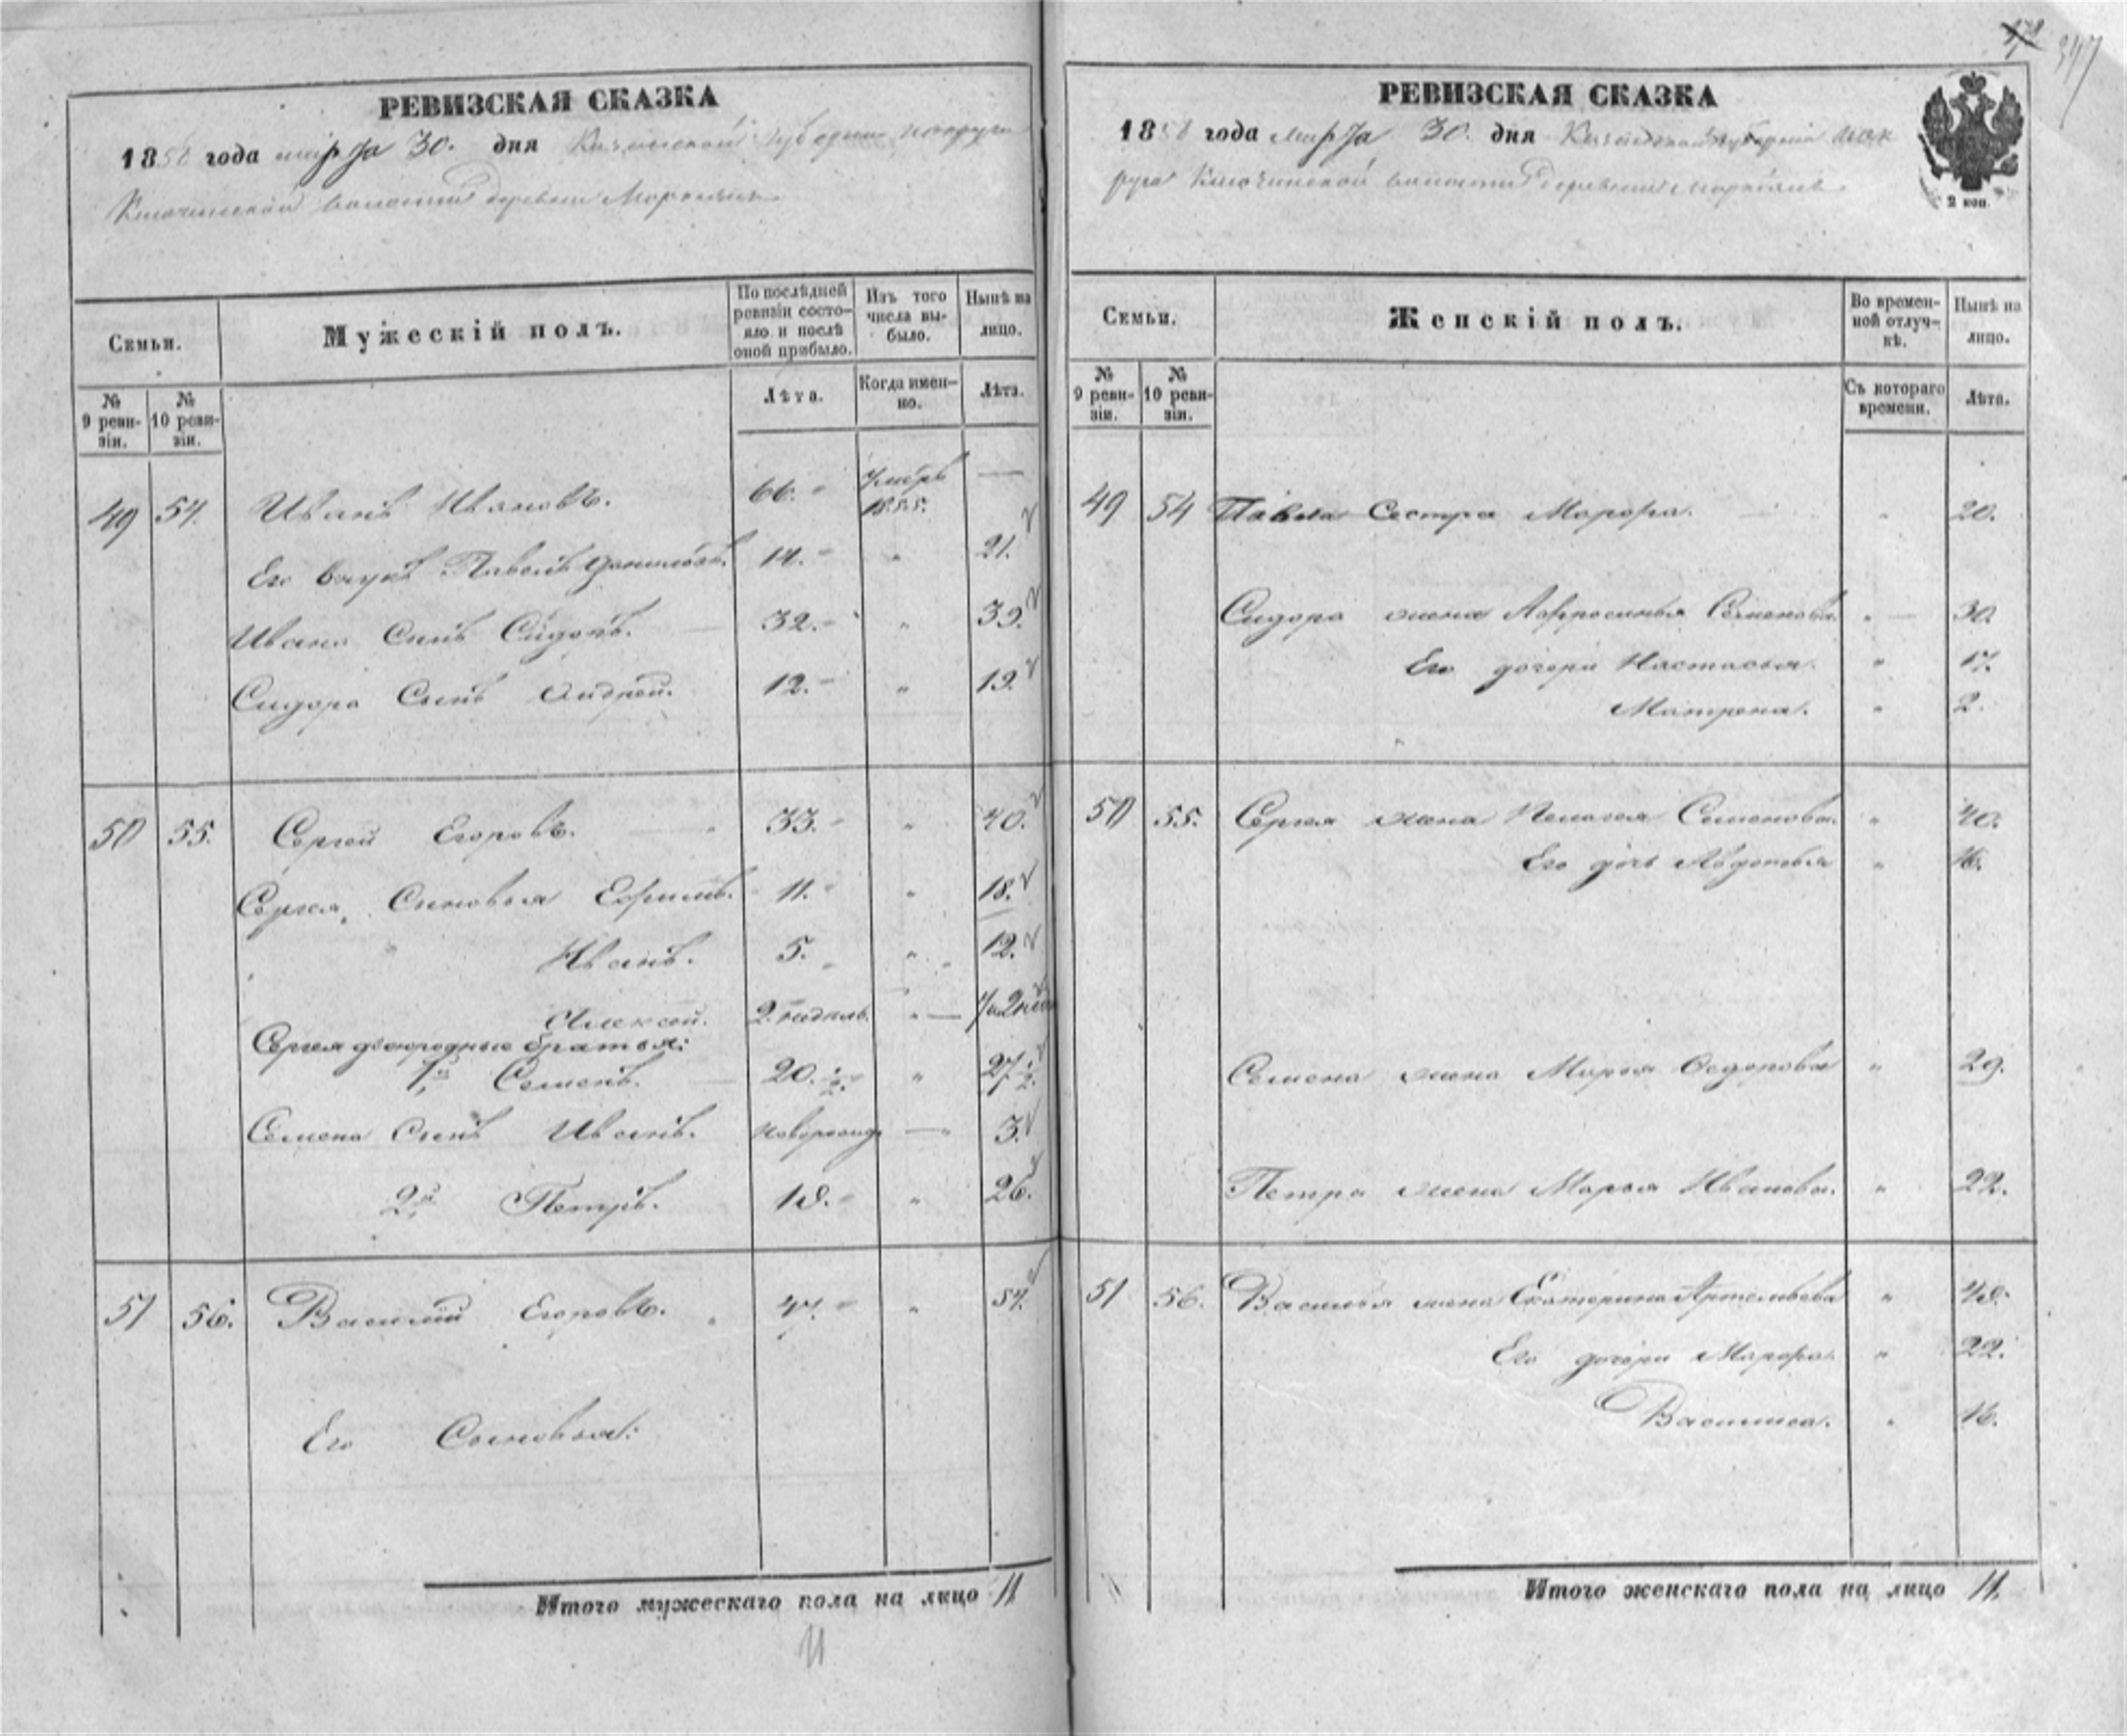 347
РЕВИЗСКАЯ СКАЗКА
1858 года марта 30. дня Казанской губернии
волости деревни
Семьи.
Мужескій полъ.
По послѣдней ревизіи состояло и послѣ оной прибыло.
Изъ того числа выбыло.
Нынѣ на лицо.
№ 9 ревизіи.
№ 10 ревизіи.
Лѣта.
Когда именно.
Лѣта.
49 54. Иванъ Ивановъ. 66. 1855. —
Его внукъ Павелъ Даниловъ. 14. " 21.
Ивана сынъ Сидоръ. 32. " 39.
Сидора сынъ Андрей. 12. " 19.
50 55. Сергей Егоровъ. 33. " 40.
Сергея сыновья Ефимъ. 11. " 18.
Иванъ. 5. " 12.
Алексей. 2. недель. " —
Сергея двоюродные братья:
1й Семенъ. 20. " 27
Семена сынъ Иванъ. новорожд. — 3.
2й Петръ. 18. " 26.
51 56. Василий Егоровъ. 47. " 54.
Его сыновья:
Итого мужескаго пола на лицо 11
11
РЕВИЗСКАЯ СКАЗКА
1858 года марта 30. дня Казанской губерніи
волости деревни
2 коп.
Семьи.
Женскій полъ.
Во временной отлучкѣ.
Нынѣ на лицо.
№ 9 ревизіи.
№ 10 ревизіи.
Съ котораго времени.
Лѣта.
49 54 Павла сестра Марфа. " 20.
Сидора жена Афросинья Семенова. " 30.
Его дочери Настасья. " 17.
Матрена. " 2.
50 55. Сергея жена Пелагея Семенова. " 40.
Его дочь Авдотья " 16.
Семена жена Марья Федорова " 29.
Петра жена Марья Иванова. " 22.
51 56. Василья жена Екатерина Артемьева " 48.
Его дочери Марфа. " 22.
Василиса. " 16.
Итого женскаго пола на лицо 11.